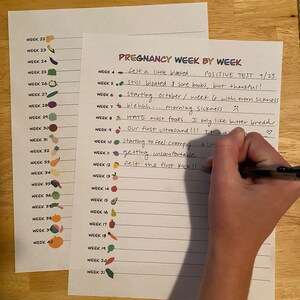 PREGNANCY WEEK BY WEEK
WEEK 4 felt a little bloated POSITIVE TEST 9/23
WEEK 5 still bloated & sore boobs, but thankful!
WEEK 6 Starting October / week 6 with morn sickness
WEEK 7 blehhh... morning sickness
WEEK 8 HATED most foods
WEEK 9 Our first ultrasound!!!
WEEK 10 starting to feel crampy
WEEK 11 getting uncomfortable
WEEK 12 felt the first
WEEK 13
WEEK 14
WEEK 15
WEEK 16
WEEK 17
WEEK 18
WEEK 19
WEEK 20
WEEK 21
WEEK 22
WEEK 23
WEEK 24
WEEK 25
WEEK 26
WEEK 27
WEEK 28
WEEK 29
WEEK 30
WEEK 31
WEEK 32
WEEK 33
WEEK 34
WEEK 35
WEEK 36
WEEK 37
WEEK 38
WEEK 39
WEEK 40